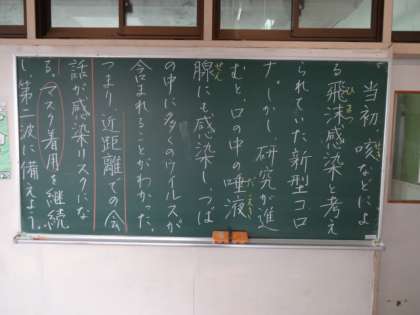 当初、咳などによ
る飛沫感染と考え
られていた新型コロ
ナ。しかし、研究が進
むと、口の中の唾液
腺にも感染し、つば
の中に多くのウイルスが
含まれることがわかった。
つまり、近距離での会
話が感染リスクにな
る。マスク着用を継続
し、第二波に備えよう。